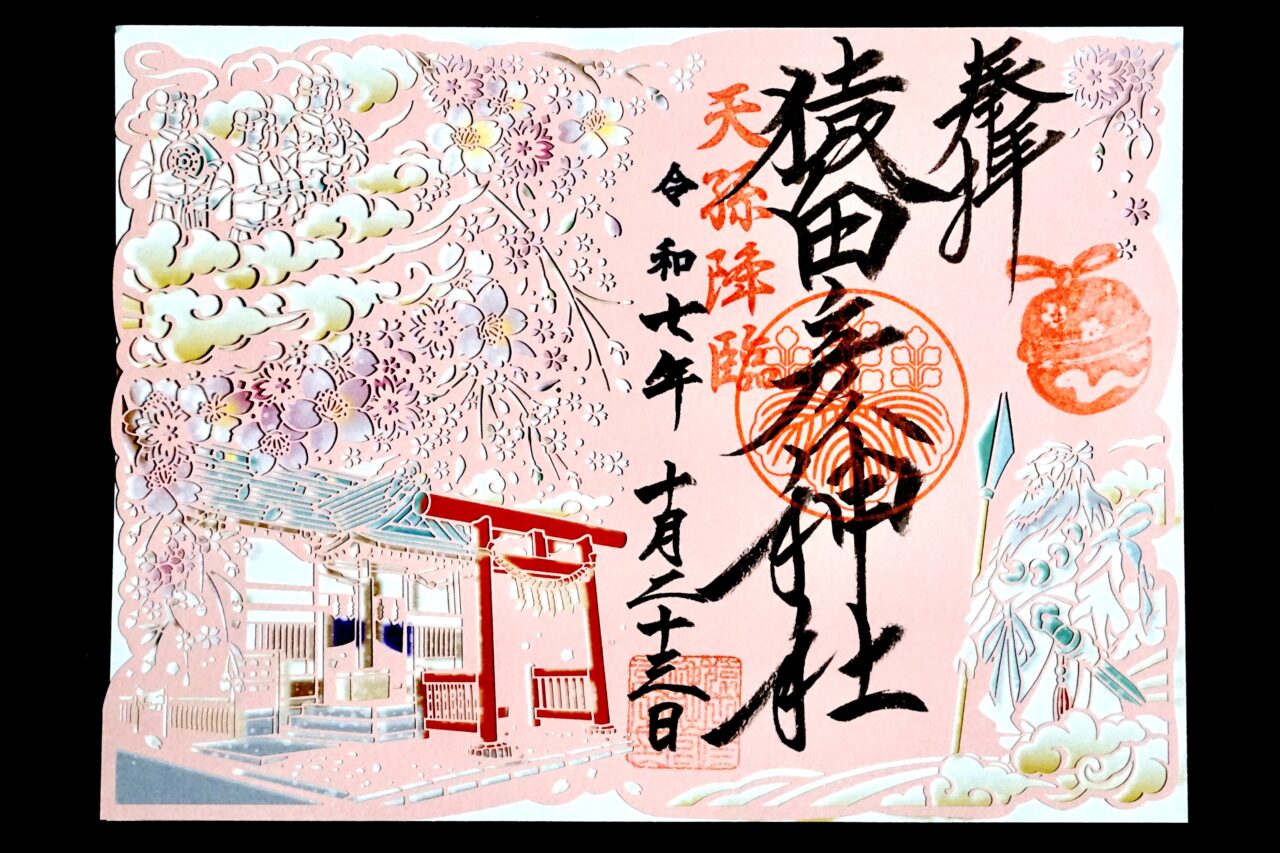 奉拝
猿田彦神社
天孫降臨
令和七年 十月二十三日